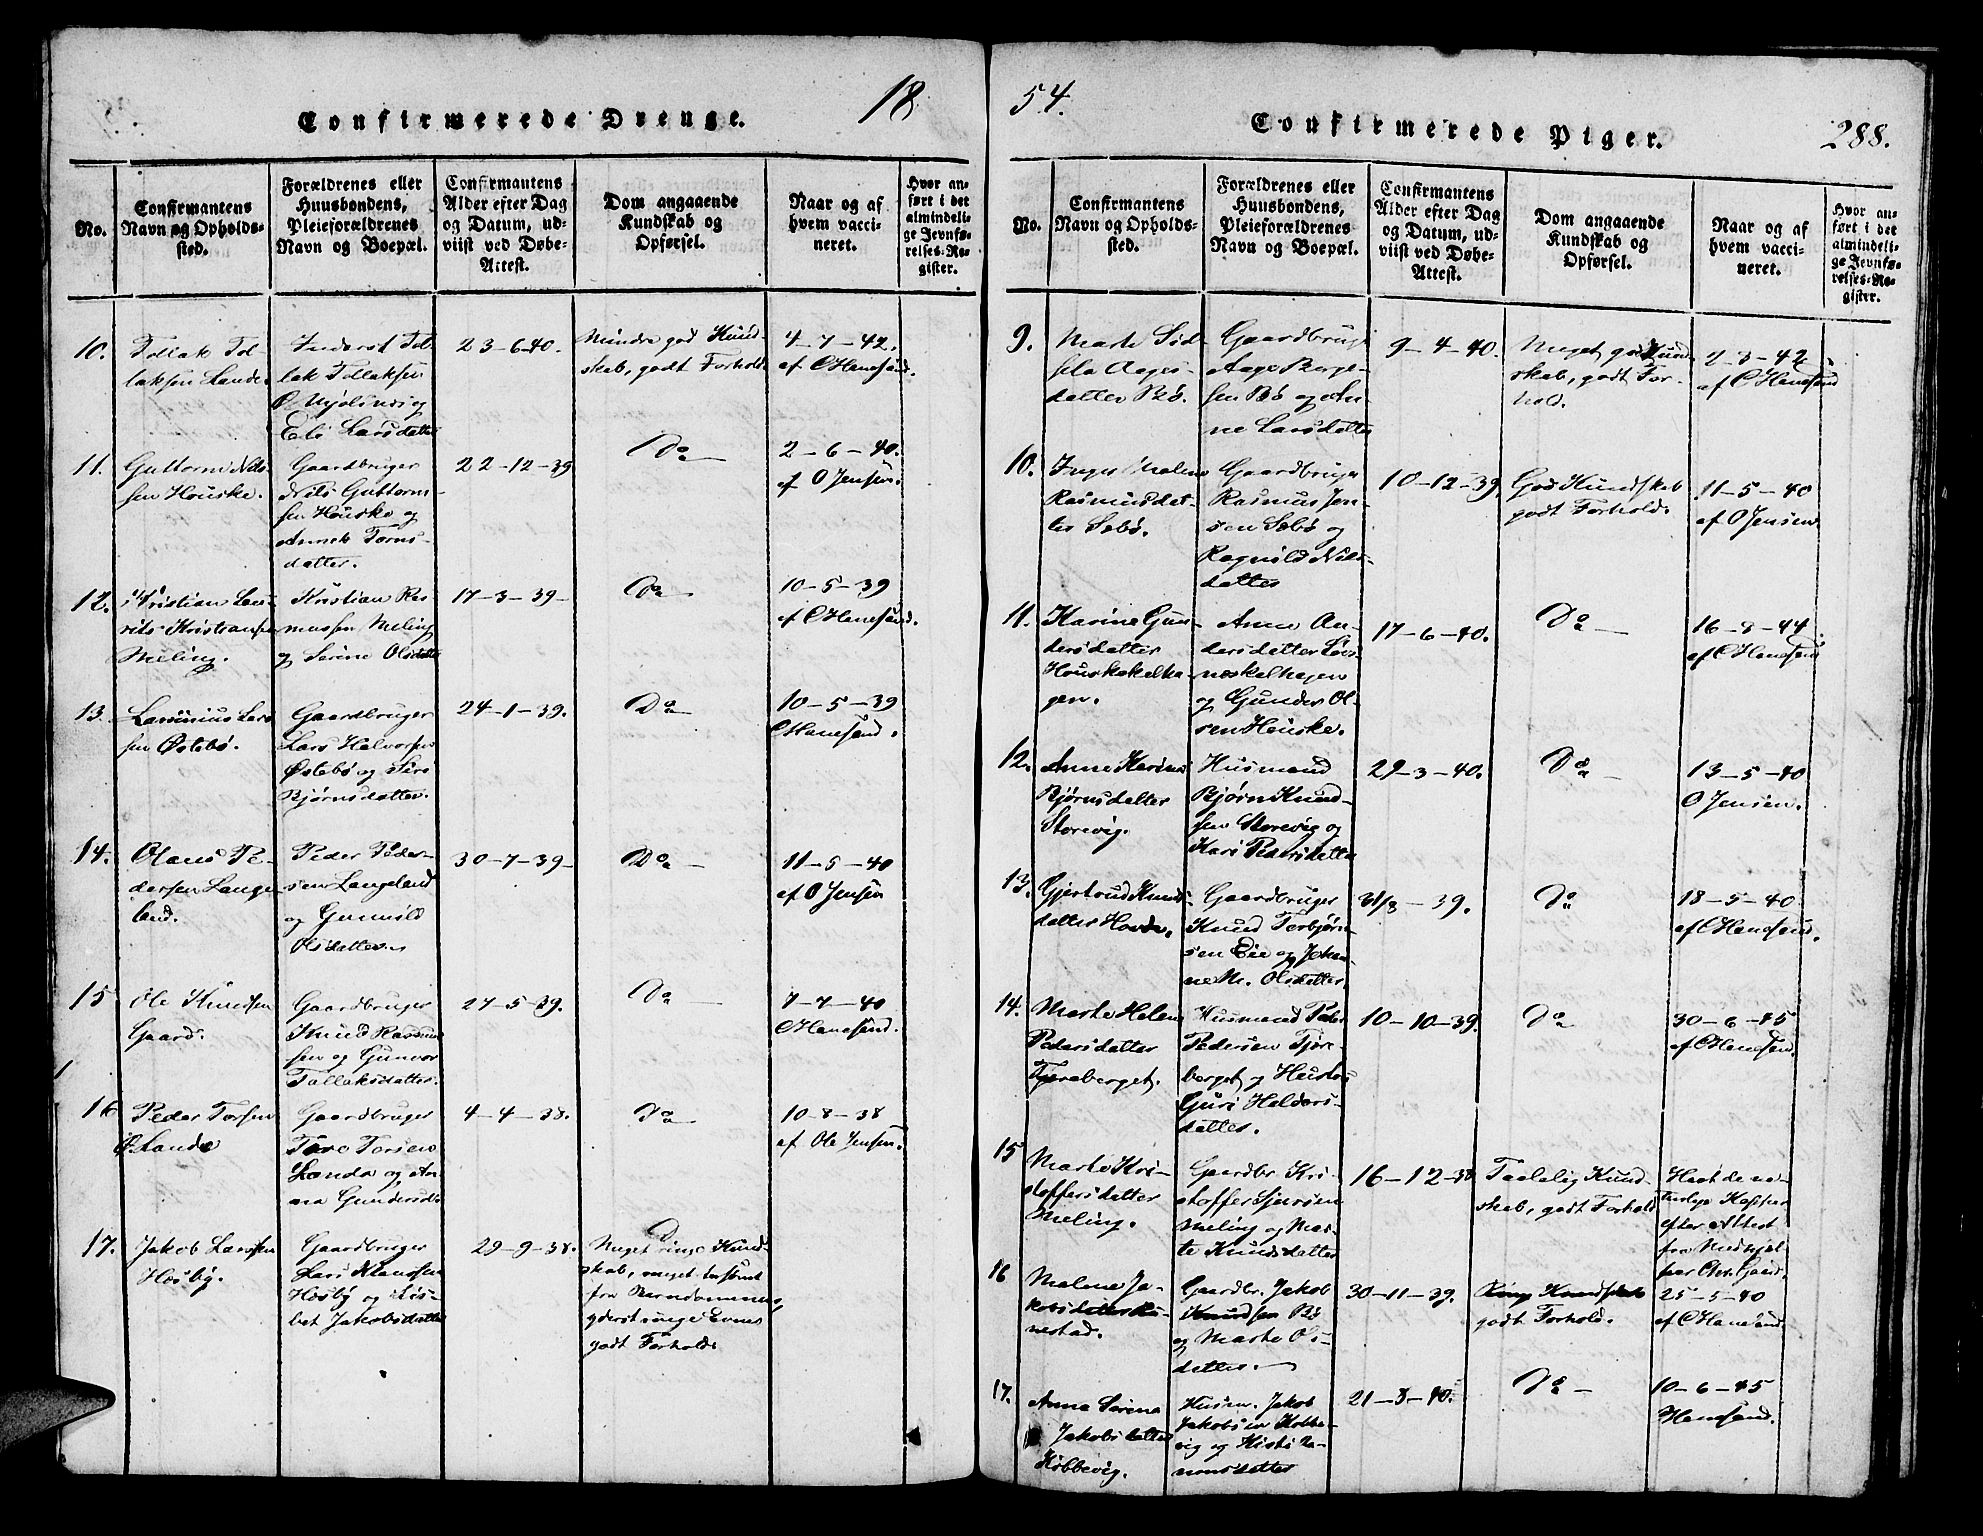 18
54.
288.
Confirmerede Drenge.
No.
Confirmantens
Navn og Opholds-
sted.
Forældrenes eller
Huusbondens,
Pleieforældrenes
Navn og Boepæl.
Confirmantens
Alder efter Dag
og Datum, ud-
viist ved Døbe-
Attest.
Dom angaaende
Kundskab og
Opførsel.
Naar og af
hvem vacci-
neret.
Hvor an-
ført i det
almindeli-
ge Jevnfø-
relses-Re-
gister.
10.
Tollak Tol-
laksen Lande
Inderst Tol-
lak Tollaksen
og
Eli Larsdatter
23-6-40.
Mindre god Kund-
skab, godt Forhold
4-7-42.
af C Hanesand.
11.
Guttorm Nils-
sen Houske.
Gaardbruger
Nils Guttorm-
sen Houske og
Torns-
datter.
22-12-39
Do
2-6-40.
af O Jensen.
12.
Kristian
Kristiansen
Meling.
Kristian Ras-
mussen Meling
og Serine Olsdatter
17-3-39
Do
10-5-39
af C Hanesand.
13.
Larsinius Lars-
sen Østebø.
Gaardbruger
Lars Halvorsen
Østebø og Siri
Bjørnsdatter.
24-1-39.
Do
10-5-39
C Hanesand.
14.
Olaus Pe-
dersen Lange-
land.
Peder Peder-
sen Langeland
og Gunnild
Olsdatter.
30-7-39
Do
11-5-40
af O Jensen
15
Ole Knudsen
Gaard.
Gaardbruger
Knud Rasmus-
sen og Gunvor
Tollaksdatter.
27-5-39.
Do
7-7-40
C Hanesand.
16
Peder Torsen
Lande
Gaardbruger
Tore Torsen
Lande og An-
na Gundersdtr
4-4-38.
Do
10-8-38
af Ole Jensen.
17.
Jakob Larssen
Hosbø.
Gaardbruger
Lars Klausen
Hosbø og Lis-
bet Jakobsdatter
29-9-38.
Meget ringe Kund-
skab, meget forsømt
fra Barndommen,
yderst ringe Evner
godt Forhold
Confirmerede Piger.
No.
Confirmantens
Navn og Opholds-
sted.
Forældrenes eller
Huusbondens,
Pleieforældrenes
Navn og Boepæl.
Confirmantens
Alder efter Dag
og Datum, ud-
viist ved Døbe-
Attest.
Dom angaaende
Kundskab og
Opførsel.
Naar og af
hvem vacci-
neret.
Hvor an-
ført i det
almindeli-
ge Jevnfø-
relses-Re-
gister.
9.
Marte Sid-
sela Aages-
datter Bø.
Gaardbruger
Aage Børge-
sen Bø og An-
ne Larsdatter
9-4-40.
Meget god Kund-
skab, godt For-
hold.
2-8-42
af C Hanesand
10.
Inger Malene
Rasmusdat-
ter Sebø.
Gaardbruger
Rasmus Jen-
sen Sebø og
Ragnild Nils-
datter
10-12-39
God Kundskab
godt Forhold.
11-5-40
af O Jensen
11.
Karine Gun-
dersdatter
Houskekelha-
gen.
Anne An-
dersdatter
og Gunder Ol-
sen Houske.
17-6-40.
Do
16-8-44.
af C Hanesand
12.
Anne Karine
Bjørnsdatter
Storevig.
Husmand
Bjørn Knud-
sen Storevig og
Kari Pedersdatter
29-3-40.
Do
13-5-40
O Jensen.
13.
Gjertrud Knuds-
datter Hovde.
Gaardbruger
Knud Torbjørn-
sen Eie og Johan-
ne M. Olsdatter.
31/3-39.
Do
18-5-40
af C Hanesand.
14.
Marte Helene
Pedersdatter
Tjøreberget.
Husmand Peder
Pedersen Tjøre-
berget og Hustru
Guri Haldors-
datter.
10-10-39.
Do
30-6-45
af C Hanesand.
15
Marte Kri-
stoffersdatter
Meling.
Gaardbr. Kri-
stoffer Sjursen
Meling og Mar-
te Knudsdatter
16-12-38
Taalelig Kund-
skab, godt Forhold
Havt de na-
turlige Kopper
efter Attest
fra Medhjel-
per Chr. Gaard.
16
Malene Ja-
kobsdatter Ru-
nestad.
Gaardbr. Jakob
Knudsen Bø
og Marte Ols-
datter.
30-11-39.
Ring Kundskab
godt Forhold.
25-5-40
af C Hanesand.
17.
Anna Serina
Jakobsdatter
Kobbevig.
Husm. Jakob
Jakobsen Kobbe-
vig og
nonsdatter
21-3-40.
Do
10-6-45
Hanesand.